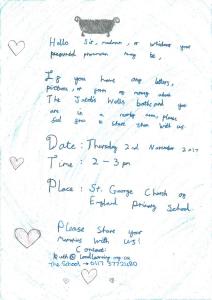 Hello Sir, madam, or whatever your
preferred pronoun may be,
If you have any letters,
pictures, or poems or money about
The Jacobs Wells baths and you
are in a nearby area, please
feel free to share them with us.
Date: Thursday 2nd November 2017
Time: 2 – 3 pm
Place: St. George Church of
England Primary School.
Please share your
memories with us!
Contact:
The School → 0117 3772480